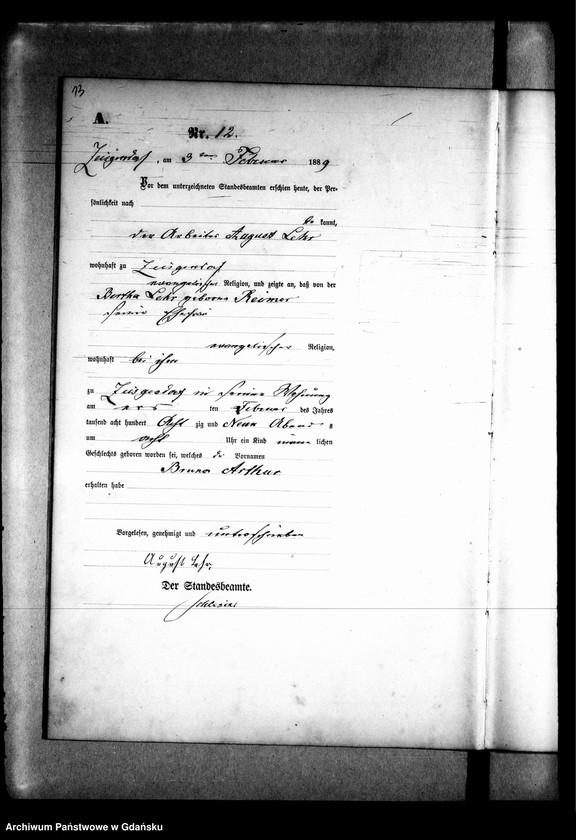 13
A.
Nr. 12.
Zeisgendorf, am 3ten Februar 1889
Vor dem unterzeichneten Standesbeamten erschien heute, der Per-
sönlichkeit nach
be kannt,
der Arbeiter August Lehr
wohnhaft zu Zeisgendorf
evangelischer Religion, und zeigte an, daß von der
Bertha Lehr geborene Reimer
seiner Ehefrau
evangelischer Religion,
wohnhaft bei ihm
zu Zeisgendorf in seiner Wohnung
am ten Februar des Jahres
tausend acht hundert Acht zig und Neun Abends
um acht Uhr ein Kind männ lichen
Geschlechts geboren worden sei, welches die Vornamen
Bruno Arthur
erhalten habe
Vorgelesen, genehmigt und unterschrieben
August Lehr.
Der Standesbeamte.
Archiwum Państwowe w Gdańsku